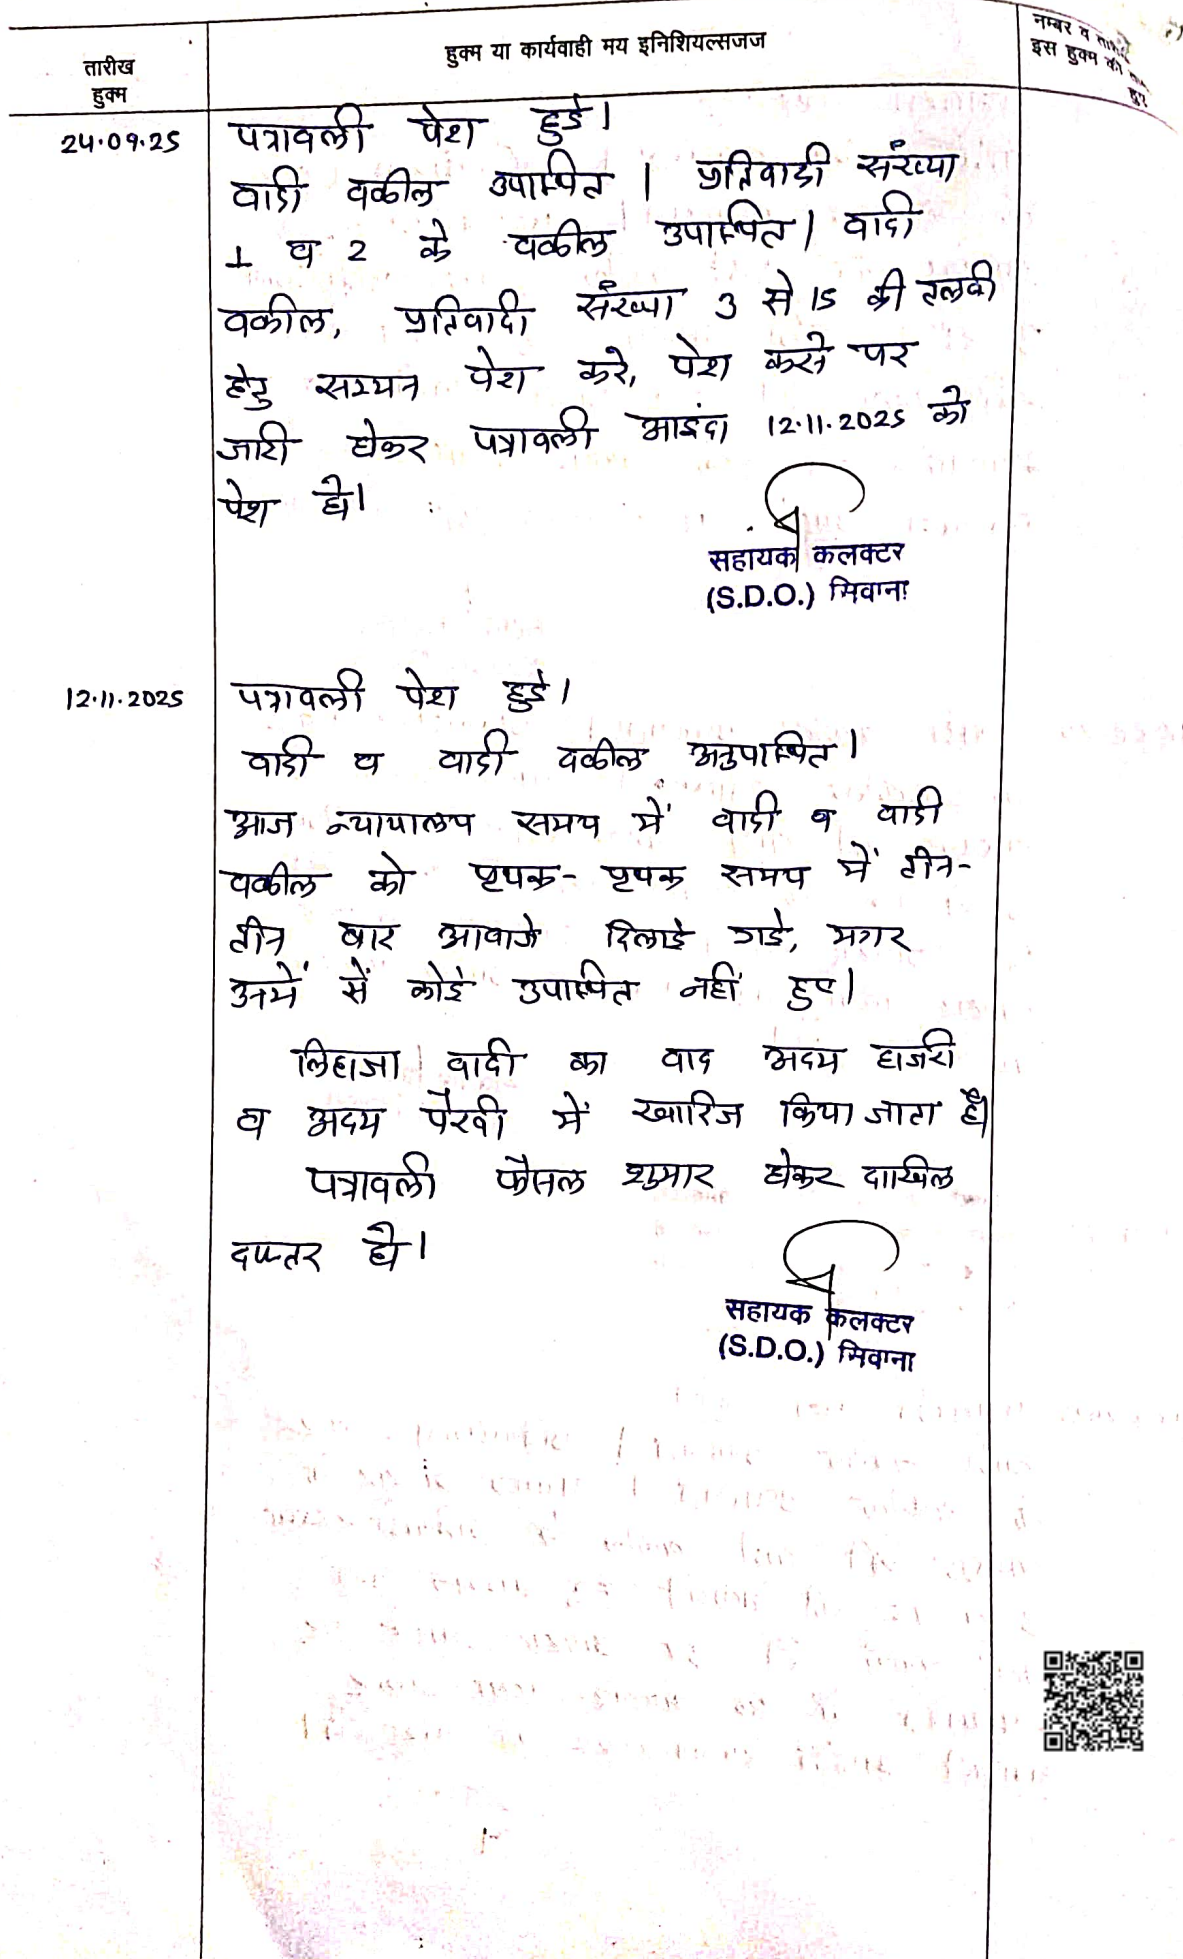 तारीख
हुक्म
हुक्म या कार्यवाही मय इनिशियल्सजज
नम्बर व
इस हुक्म की
हुए
24.09.25
पत्रावली पेश हुई।
वादी वकील उपस्थित। प्रतिवादी संख्या
1 व 2 के वकील उपस्थित। वादी
वकील, प्रतिवादी संख्या 3 से 15 की तलबी
हेतु सम्मन पेश करे, पेश करने पर
जारी होकर पत्रावली आइंदा 12.11.2025 को
पेश हो।
सहायक कलक्टर
(S.D.O.) सिवाना
12.11.2025
पत्रावली पेश हुई।
वादी व वादी वकील अनुपस्थित।
आज न्यायालय समय में वादी व वादी
वकील को पृथक-पृथक समय में तीन-
तीन बार आवाजे दिलाई गई, मगर
उनमें सें कोई उपस्थित नहीं हुए।
लिहाजा वादी का वाद अदम हाजरी
व अदम पैरवी में खारिज किया जाता है।
पत्रावली फैसल शुमार होकर दाखिल
दफ्तर हो।
सहायक कलक्टर
(S.D.O.) सिवाना